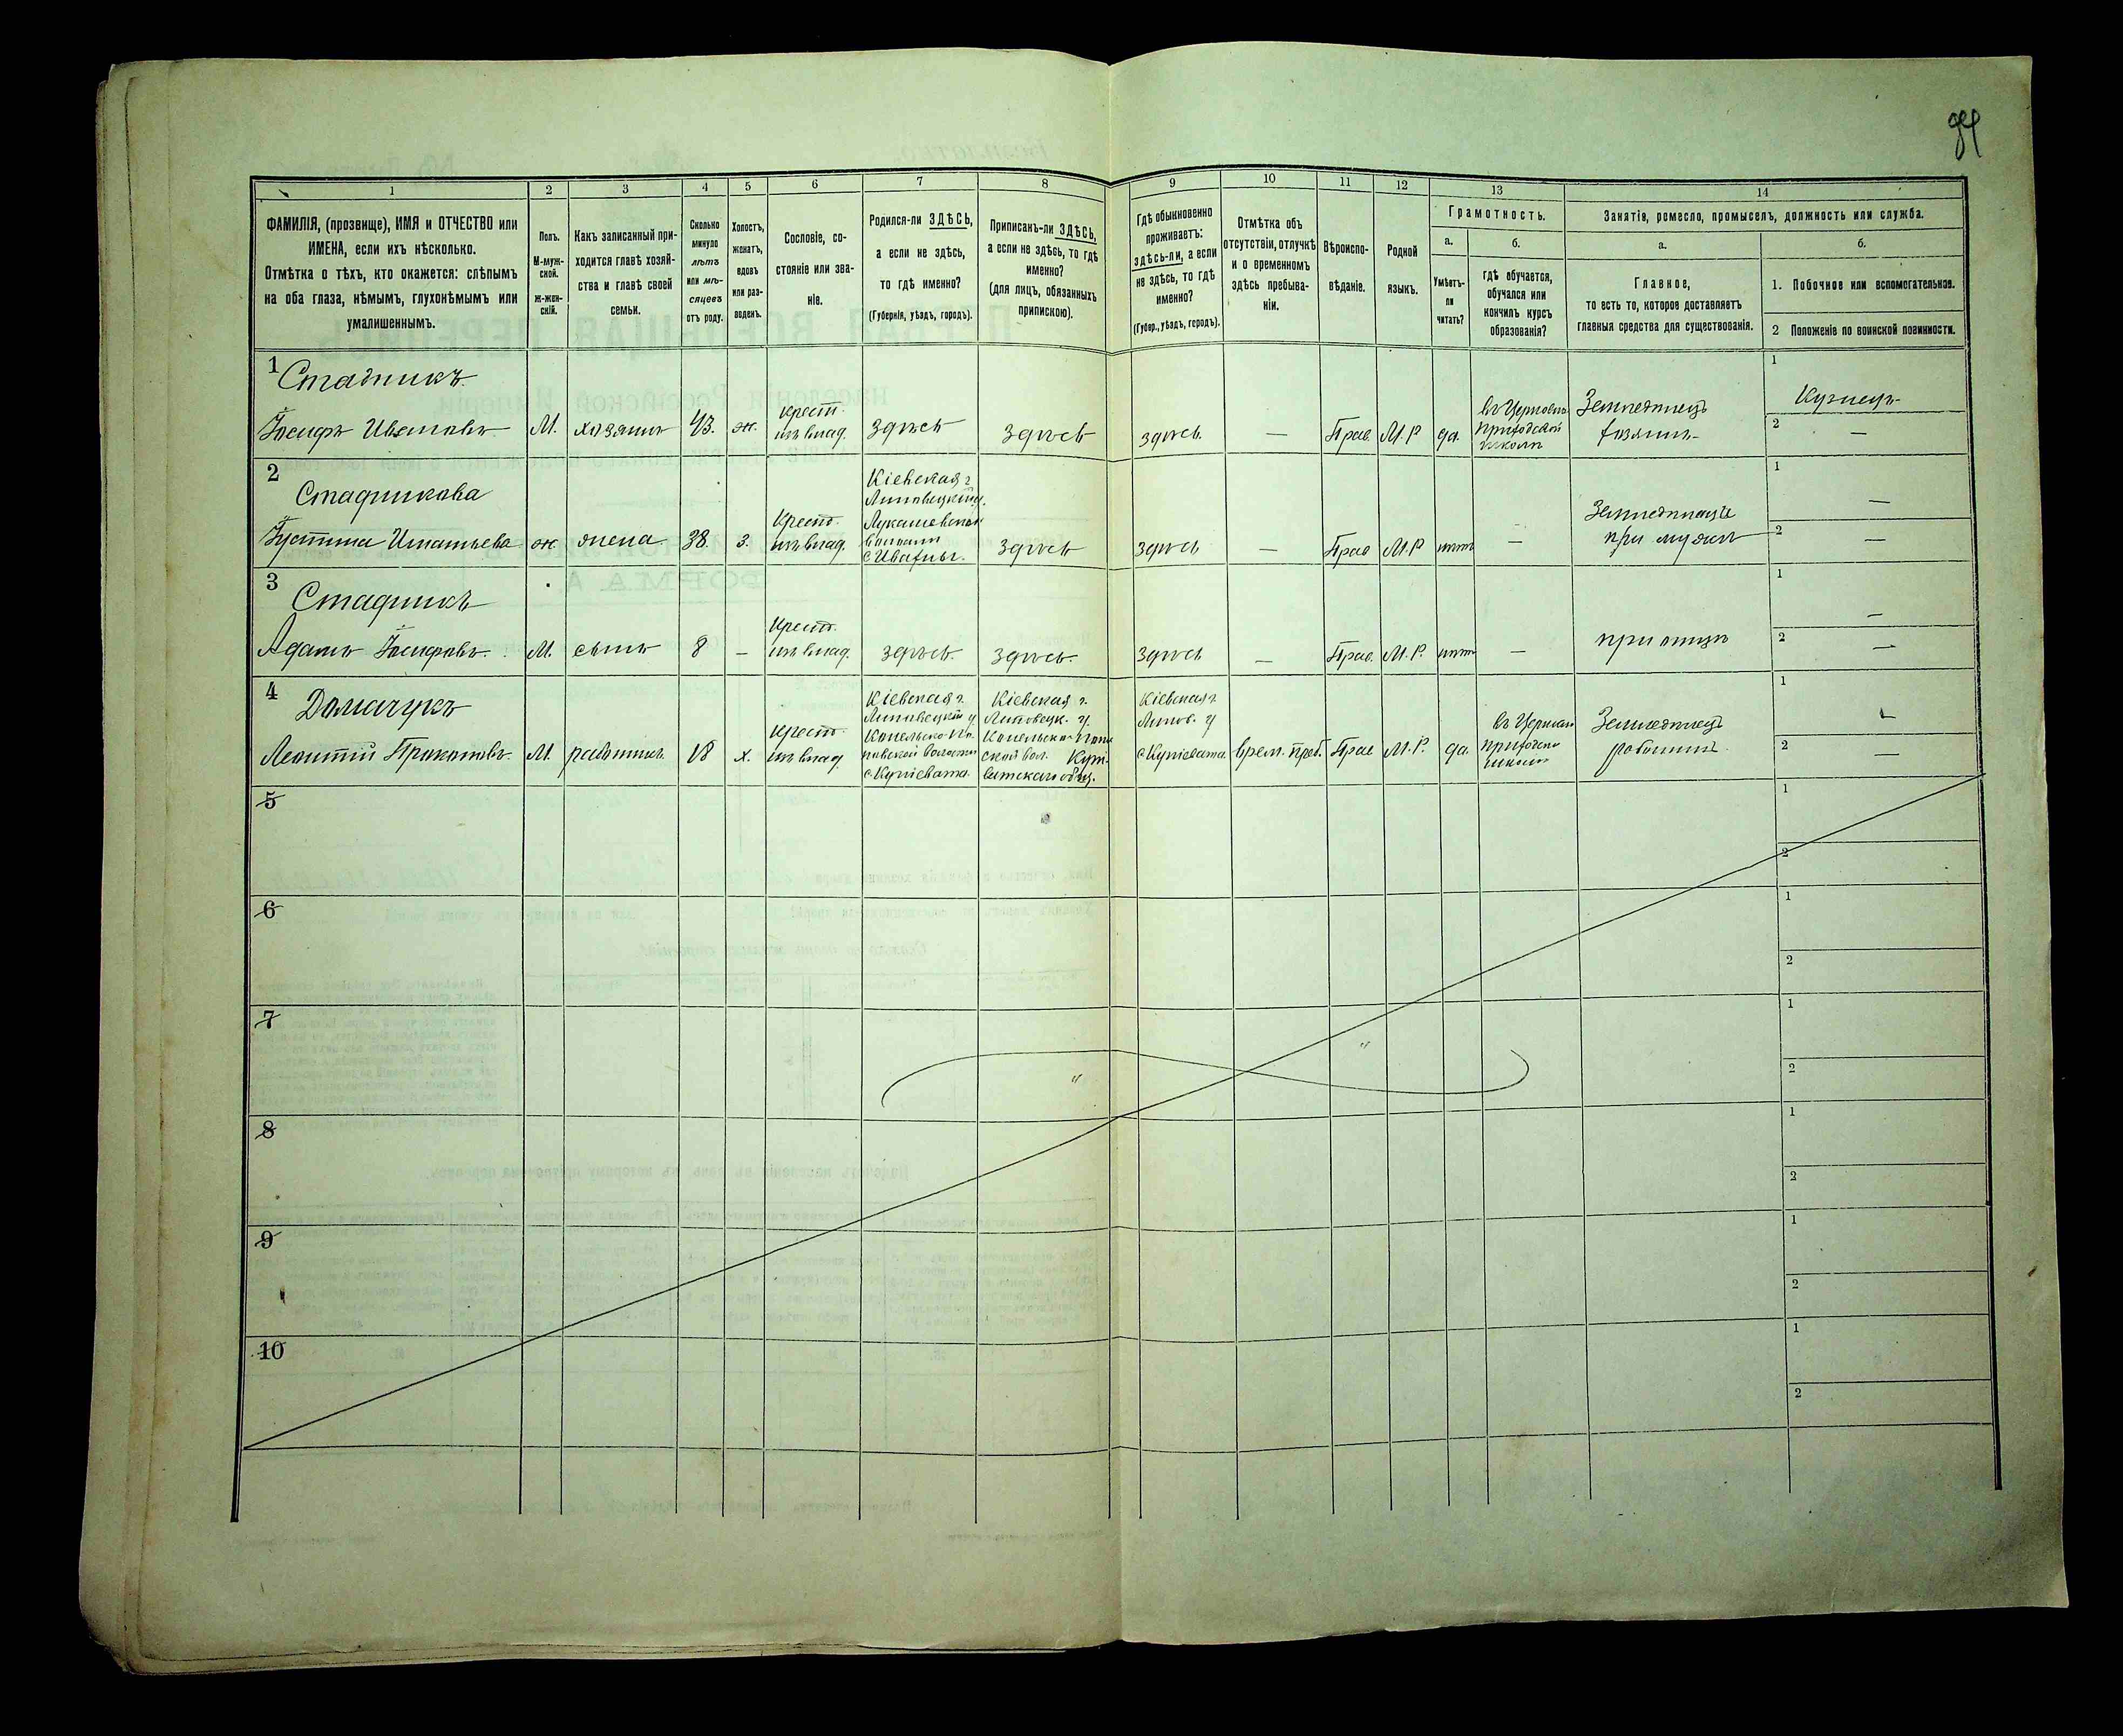 1
2
3
4
5
6
7
8
9
10
11
12
13
14
ФАМИЛІЯ, (прозвище), ИМЯ и ОТЧЕСТВО или
ИМЕНА, если ихъ нѣсколько.
Отмѣтка о тѣхъ, кто окажется: слѣпымъ
на оба глаза, нѣмымъ, глухонѣмымъ или
умалишеннымъ.
Полъ.
М-муж-
ской.
ж-жен-
скій.
Какъ записанный при-
ходится главѣ хозяй-
ства и главѣ своей
семьи.
Сколько
минуло
лѣтъ
или мѣ-
сяцевъ
отъ роду.
Холостъ,
женатъ,
вдовъ
или раз-
веденъ.
Сословіе, со-
стояніе или зва-
ніе.
Родился-ли ЗДѢСЬ,
а если не здѣсь,
то гдѣ именно?
(Губернія, уѣздъ, городъ).
Приписанъ-ли ЗДѢСЬ,
а если не здѣсь, то гдѣ
именно?
(для лицъ, обязанныхъ
припискою).
Гдѣ обыкновенно
проживаетъ:
здѣсь-ли, а если
не здѣсь, то гдѣ
именно?
(Губер., уѣздъ, городъ).
Отмѣтка объ
отсутствіи, отлучкѣ
и о временномъ
здѣсь пребыва-
ніи.
Вѣроиспо-
вѣданіе.
Родной
языкъ.
Грамотность.
а.
б.
Умѣетъ-
ли
читать?
гдѣ обучается,
обучался или
кончилъ курсъ
образованія?
Занятія, ремесло, промыселъ, должность или служба.
а.
б.
Главное,
то есть то, которое доставляетъ
главныя средства для существованія.
1. Побочное или вспомогательное.
2 Положеніе по воинской повинности.
1
Стадникъ
Іосифъ Ивановъ
М.
хозяинъ
43.
ж.
крест.
изъ влад.
здѣсь
здѣсь
здѣсь.
—
Прав.
М.Р
да.
въ Церковн.
приходской
школѣ
Земледѣлецъ
хозяинъ
1
Кузнецъ
2
—
2
Стадникова
Іустина Игнатьева
ж.
жена
38.
з.
Крест.
изъ влад.
Кіевская г.
Липовецкій у.
Лукашевской
волости
с Ивахны.
здѣсь
здѣсь
—
Прав
М.Р
нѣтъ
—
Земледѣлица
при мужѣ
1
—
2
—
3
Стадникъ
Адамъ Іосифовъ.
М.
сынъ
8
—
Крест.
изъ влад.
здѣсь.
здѣсь.
здѣсь
—
Прав.
М.Р.
нѣтъ
—
при отцѣ
1
—
2
—
4
Домачукъ
Леонтій Прокоповъ.
М.
работникъ
18
х.
Крест.
изъ влад
Кіевская г.
Липовецкій у
с. Купіевата.
Кіевская г.
Липовецк. у.
Кіевская г.
Липов. у
с Купіевата
врем. преб.
Прав
М.Р.
да.
въ Церковн
приходск
школѣ
Земледѣлецъ
работникъ
1
2
—
5
1
2
6
1
2
7
1
2
8
1
2
9
1
2
10
1
2